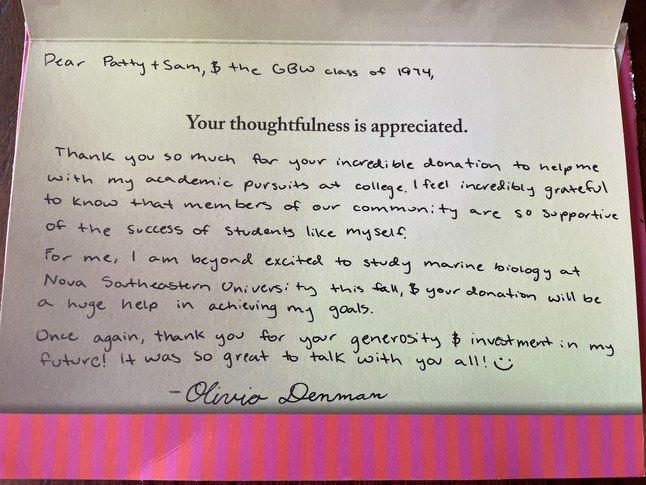 Dear Patty + Sam, & the GBW class of 1974,
Your thoughtfulness is appreciated.
Thank you so much for your incredible donation to help me
with my academic pursuits at college. I feel incredibly grateful
to know that members of our community are so supportive
of the success of students like myself.
For me, I am beyond excited to study marine biology at
Nova Southeastern University this fall, & your donation will be
a huge help in achieving my goals.
Once again, thank you for your generosity & investment in my
future! It was so great to talk with you all! :)
- Olivia Denman